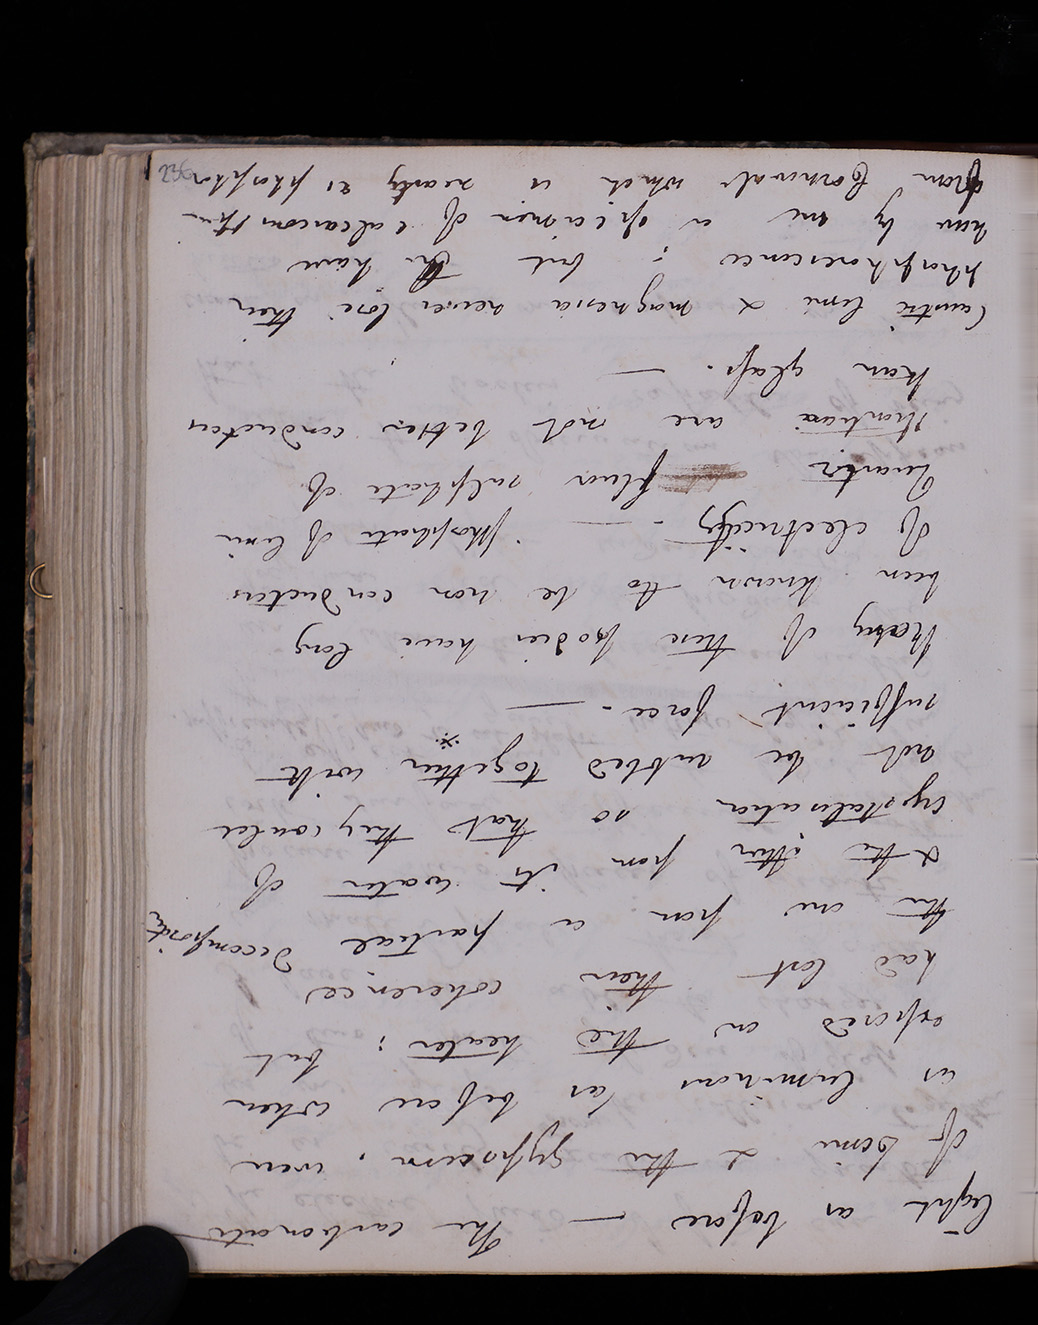 light as before — The carbonate
of Lime & the gypseum, were
as luminous as before when
exposed on the heater: but
had lost their coherence
the one from a partial decomposition
& the other from its water of
crystalisation so that they could
not be rubbed together with
sufficient force. —
Many of these bodies have long
been known to be non conductors
of electricity - — phosphate of lime
Quartz fluor sulphate of
strontian are not better conductors
than glass. —
Caustic lime & magnesia never lose their
phosphorescence : but I have
now by me a specimen of calcareous spar
from Cornwall which is nearly as phosphor
236